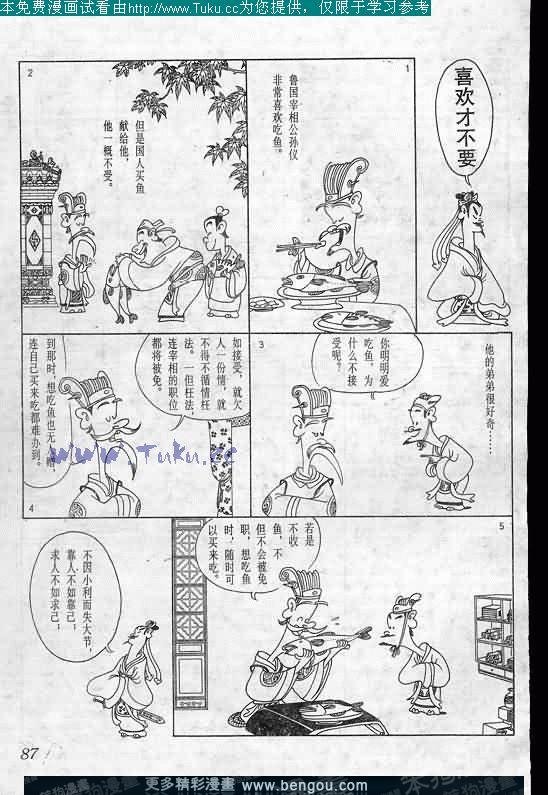 本免费漫画试看由http://www.Tuku.cc为您提供，仅限于学习参考
喜欢才不要
1
鲁国宰相公孙仪
非常喜欢吃鱼。
2
但是国人买鱼
献给他，
他一概不受。
他的弟弟很好奇……
3
你明明爱
吃鱼，为
什么不接
受呢？
如接受，就欠
人一份情，就
不得不循情枉
法。一但枉法，
连宰相的职位
都将被免。
4
到那时，想吃鱼也无人赠，
连自己买来吃都难办到。
www.Tuku.cc
5
若是
不收
鱼，不
但不会被免
职，想吃鱼
时，随时可
以买来吃。
不因小利而失大节，
靠人不如靠己；
求人不如求己；
87
笨狗漫画
更多精彩漫畫 www.bengou.com
笨狗漫画